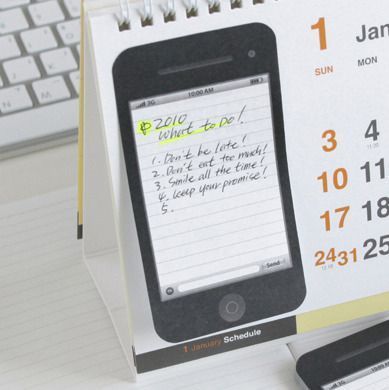 3G 10:00 AM
2010
What to Do!
1. Don't be late!
2. Don't eat too much!
3. Smile all the time!
4. keep your promise!
5.
Send
1 January Schedule
1 Jan
SUN MON
3 4
10 11
17 18
24 31 25